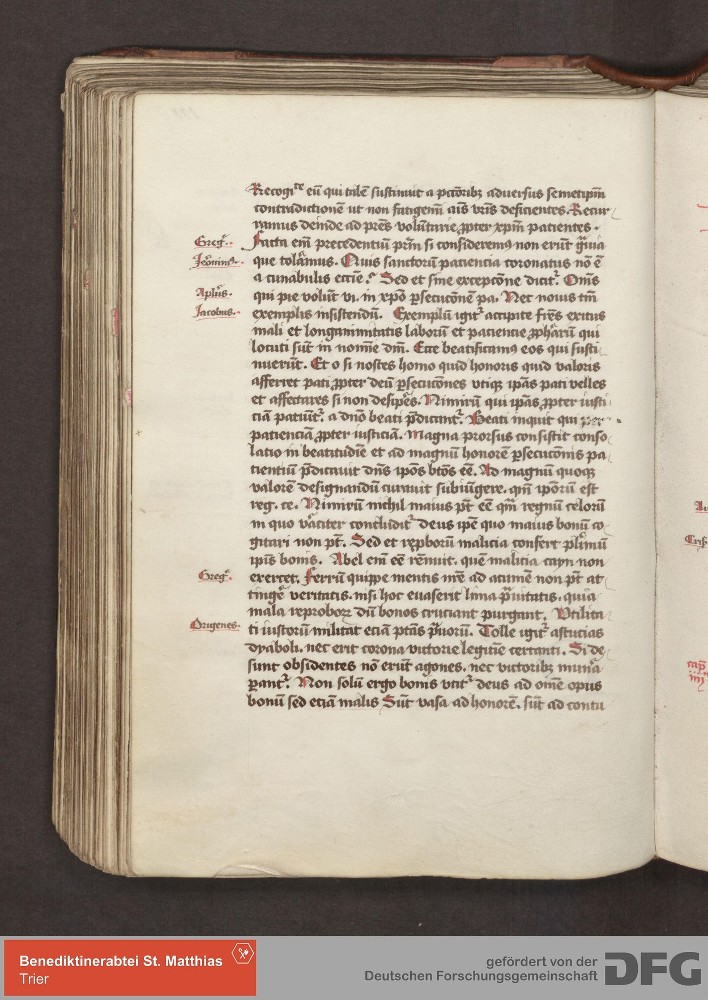 Recogi^te eū qui talē sustinuit a pctōribꝫ adversus semetipm̄
contradictionē ut non fatigem̄ aīs vr̄is deficientes. Recur
ramus deinde ad pn̄s volūtarie ꝓpter xpm̄ patientes.
Greg⁹. Facta em̄ precedentiū prm̄ si consideremꝰ non erūt gͣuia
Jeronimꝰ. que tolāmus. Quis sanctorū patientia coronatus nō ē
a cunabulis ecc̄ie. Sed et sine exceptōne dicit᷑. Om̄s
Aplūs. qui pie volūt vi. in xpō ꝑsecucōnē pa. Nec nouis tm̄
Jacobus. exemplis insistendū. Exemplū igit᷑ accipite fr̄es exitus
mali et longanimitatis laborū et patientie ꝓphārū qui
locuti sūt in nomīe dm̄. Ecce beatificamꝰ eos qui susti
nuerūt. Et o si nosses homo quid honoris quid valoris
afferret pati ꝓpter deū ꝑsecucōnes utiqꝫ ip̄as pati velles
et affectares si non desipēs. Nimirū qui ip̄as ꝓpter iusti
ciā patiūt᷑. a dn̄o beati p̄dicant᷑. Beati inquit qui per
patienciā ꝓpter iusticiā. Magna prorsus consistit conso
latio in beatitudīe et ad magnū honorē ꝑsecucōnis pa
tientiū p̄dicauit dn̄s ip̄os btōs eē. Ad magnū quoqꝫ
valorē designandū curauit subiūgere. qm̄ ip̄orū est
reg. ce. Nimirū nichil maius pt̄ eē qm̄ regnū celorū
in quo vāciter concludit᷑ deus ip̄e quo maius bonū co
gitari non pt̄. Sed et repborū malicia confert plīmū
ip̄is bonis. Abel em̄ eē rēnuit. quē malicia cayn non
Greg⁹. exercet. Ferrū quippe mentis nr̄e ad acumē non pt̄ at
tingē veritatis. nisi hoc euaserit lima p̄uitatis. quia
mala reproborꝫ dū bonos cruciant purgant. Utilita
Origenes. ti iustorū militat eciā ptās p̄uorū. Tolle igit᷑ astucias
dyaboli. nec erit corona victorie legitīe certanti. Si de
sunt obsidentes nō erūt agones. nec victoribꝫ munͣa
ꝑant᷑. Non solū ergo bonis utit᷑ deus ad om̄e opus
bonū sed eciā malis Sūt vasa ad honorē. sūt ad contu
cap̄
iiijᵐ
Benediktinerabtei St. Matthias
Trier
gefördert von der
Deutschen Forschungsgemeinschaft DFG